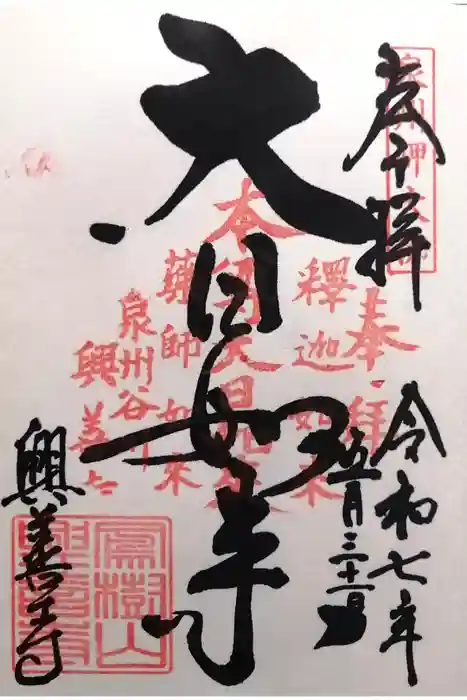 奉拝
令和七年
五月三十一日
大日如来
興善寺
奉拝
釋迦如来
本尊大日如来
藥師如来
泉州谷川
興善寺